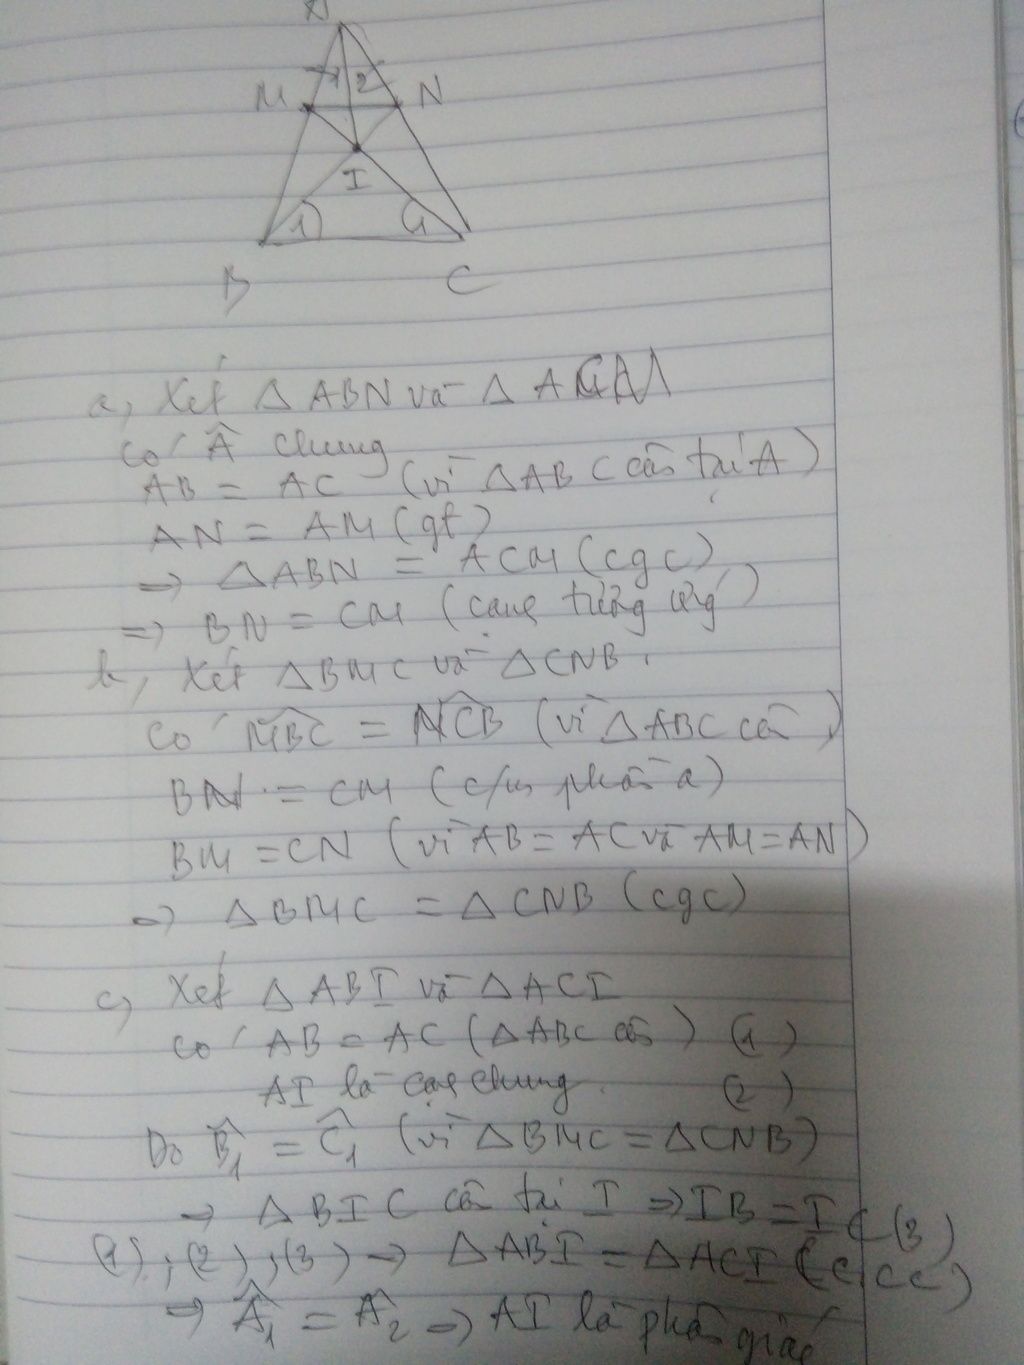 A
1 2
M N
I
1 1
B C
a, Xét Δ ABN và Δ ACM
có Â chung
AB = AC (vì ΔABC cân tại A)
AN = AM (gt)
=> ΔABN = ACM (cgc)
=> BN = CM (cạnh tương ứng)
b, Xét ΔBMC và ΔCNB.
có MBC = NCB (vì ΔABC cân)
BN = CM (c/m phần a)
BM = CN (vì AB = AC và AM = AN)
=> ΔBMC = ΔCNB (cgc)
c, Xét ΔABI và ΔACI
có AB = AC (ΔABC cân) (1)
AI là cạnh chung. (2)
Do B̂₁ = Ĉ₁ (vì ΔBMC = ΔCNB)
=> ΔBIC cân tại I => IB = IC (3)
(1), (2), (3) => ΔABI = ΔACI (c.c.c)
=> Â₁ = Â₂ => AI là phân giác